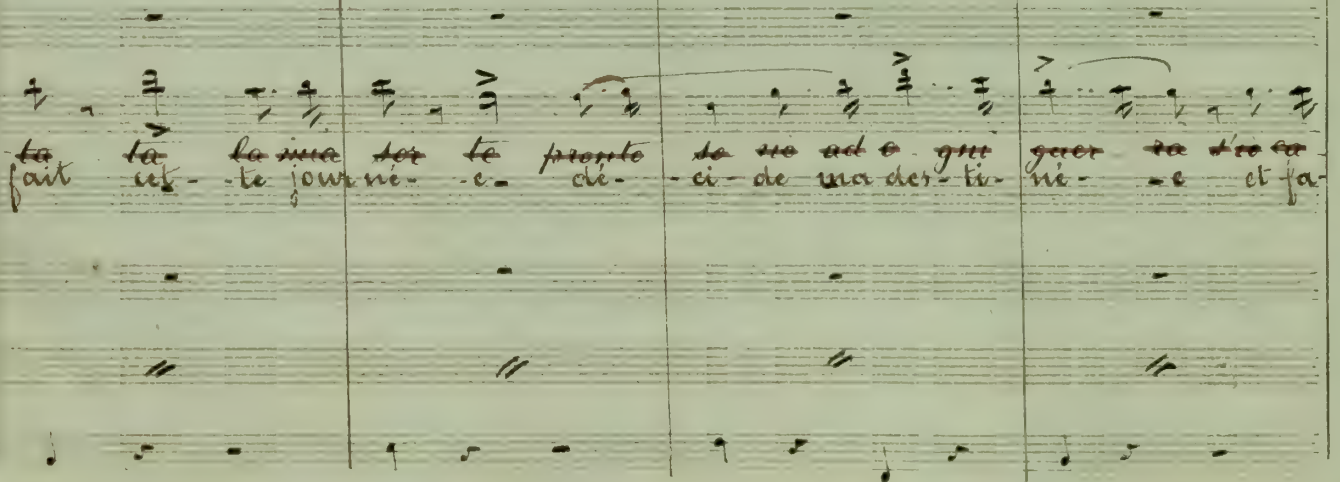 ta ta la mia sor te pronto so no ad o gni guer ra s'io ca
fait cet - te jour né - e - dé - ci - de ma des - ti - né - e et fa -